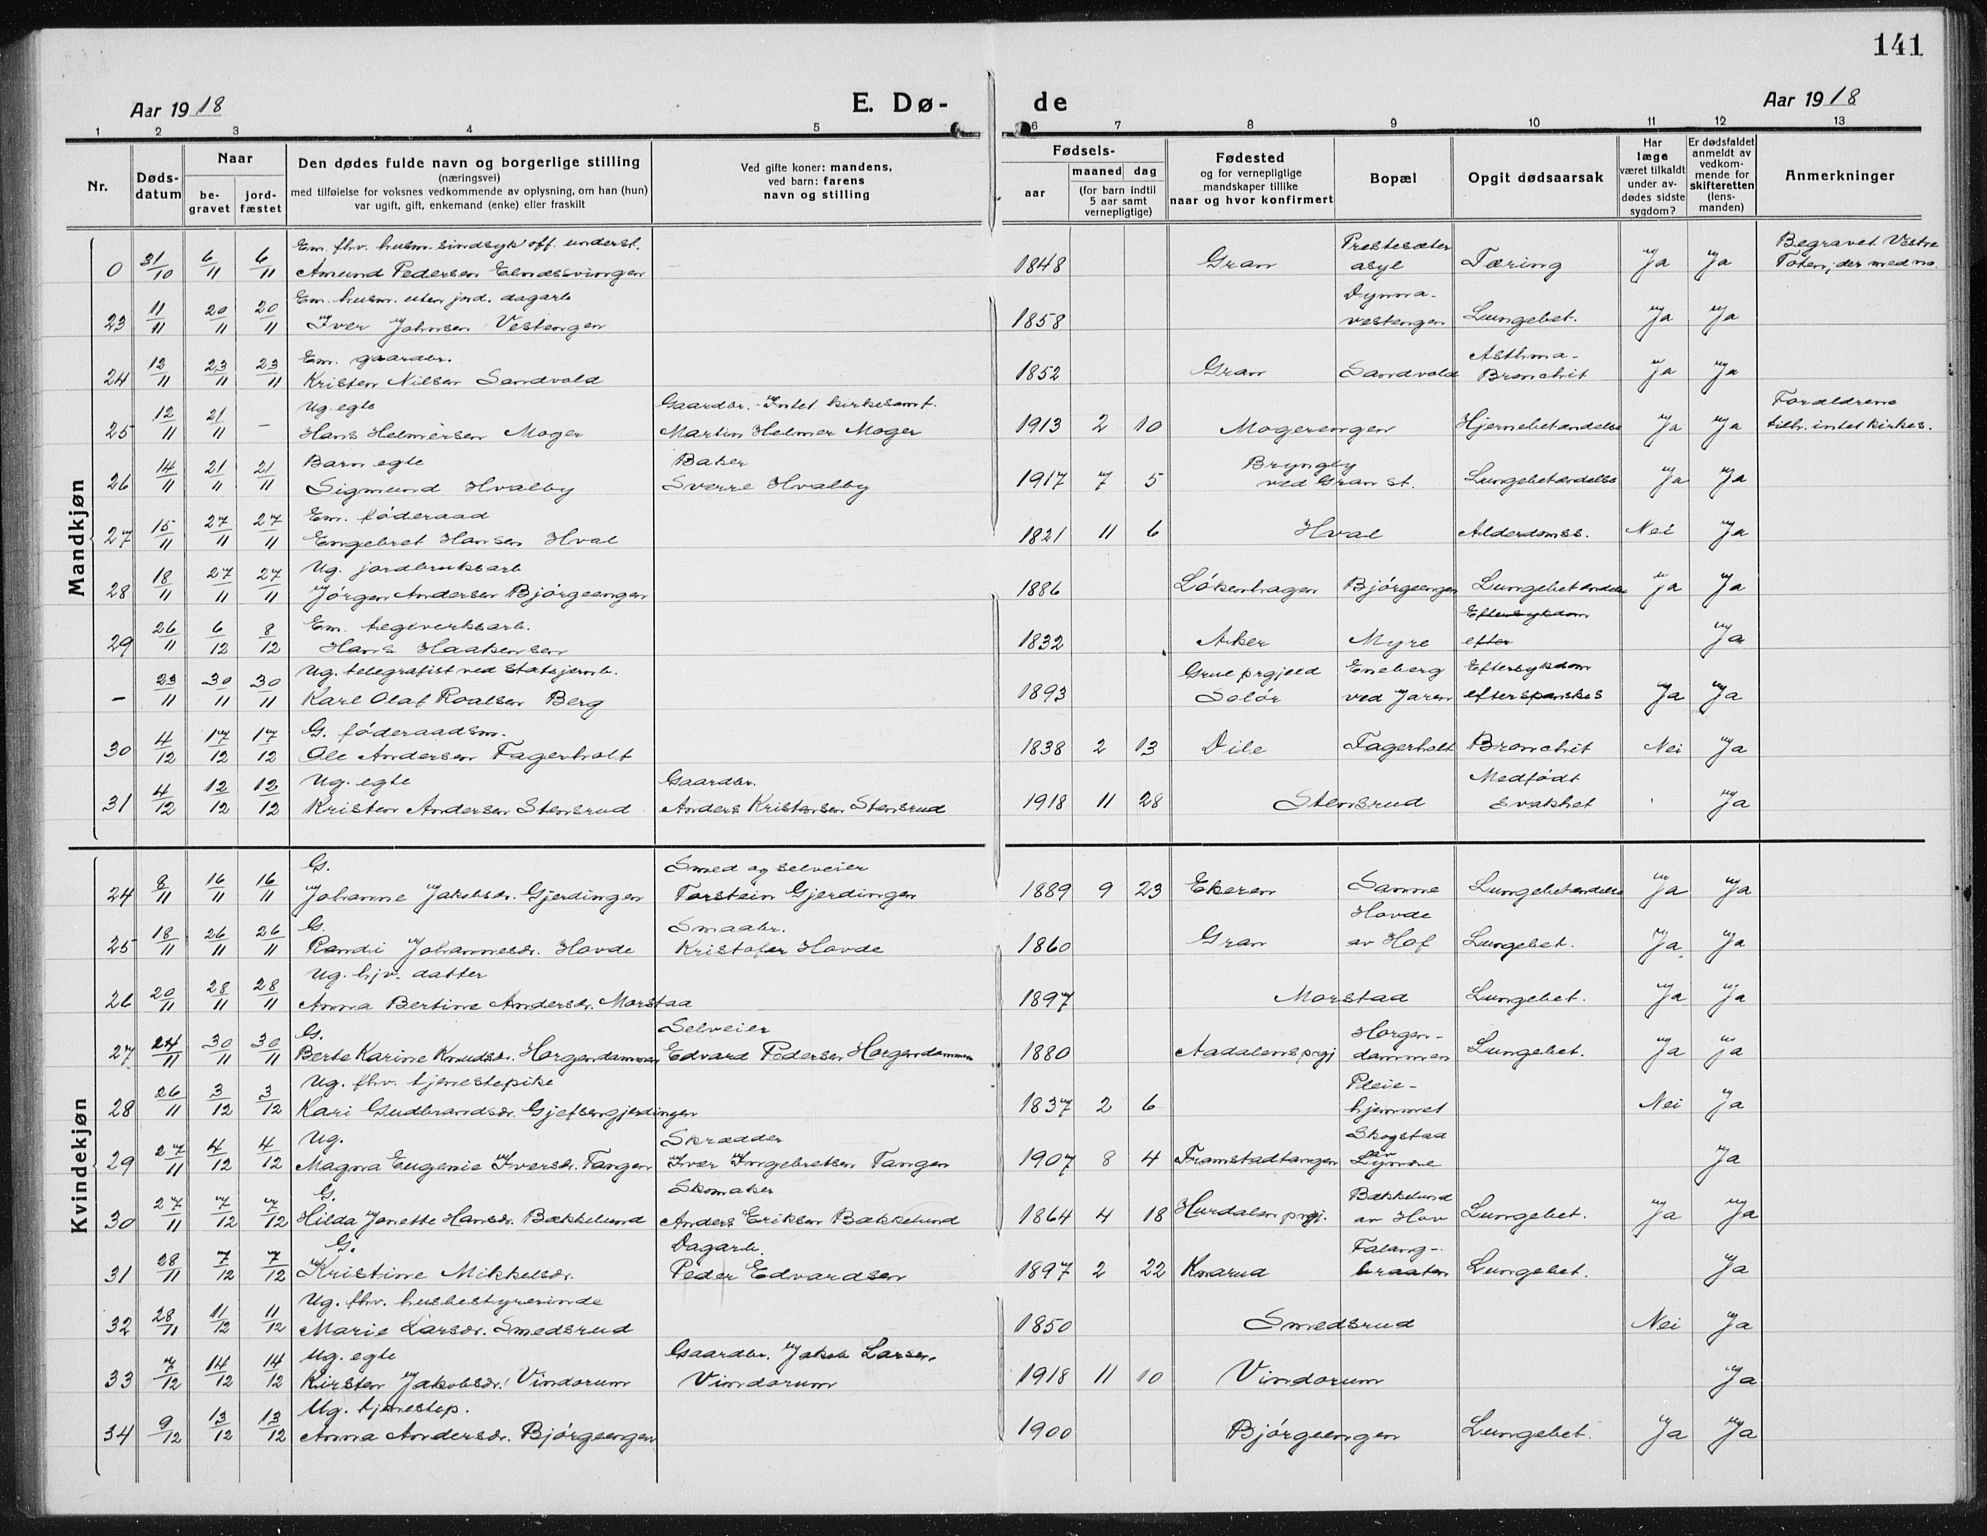 141
Aar 1918 E. Dø- de Aar 1918
1 2 3 4 5 6 7 8 9 10 11 12 13
Nr. Dødsdatum Naar begravet jordfæstet
Den dødes fulde navn og borgerlige stilling
(næringsvei)
med tilføielse for voksnes vedkommende av oplysning, om han (hun)
var ugift, gift, enkemand (enke) eller fraskilt
Ved gifte koner: mandens,
ved barn: farens
navn og stilling
Fødsels-
aar maaned dag
(for barn indtil
5 aar samt
vernepligtige)
Fødested
og for vernepligtige
mandskaper tillike
naar og hvor konfirmert
Bopæl
Opgit dødsaarsak
Har
læge
været tilkaldt
under av-
dødes sidste
sygdom?
Er dødsfaldet
anmeldt av
vedkom-
mende for
skifteretten
(lens-
manden)
Anmerkninger
Mandkjøn
Em. fhv. husm. sindsyk off. underst. Prestesæter Begravet Vestre
0 31/10 6/11 6/11 Amund Pedersen Elnæssvingen 1848 Gran asyl Tæring Ja Ja Toten, der med no.
Em. husm. uten jord. dagarb Dynna-
23 11/11 20/11 20/11 Iver Johnsen Vestengen 1858 vestengen Lungebet. Ja Ja
Em. gaardbr. Asthma-
24 12/11 23/11 23/11 Kristen Nilsen Sandvold 1852 Gran Sandvold Bronchit Ja Ja
Ug. egte Gaardbr. - Intet kirkesamf. Forældrene
25 12/11 21/11 - Hans Helmersen Moger Martin Helmer Moger 1913 2 10 Mogerengen Hjernebetændelse Ja Ja tilh. intet kirkes.
Barn egte Baker Bryngby
26 14/11 21/11 21/11 Sigmund Hvalby Sverre Hvalby 1917 7 5 ved Gran st. Lungebetændelse Ja Ja
Em. föderaad
27 15/11 27/11 27/11 Engebret Hansen Hval 1821 11 6 Hval Alderdomss. Nei Ja
Ug. jordbruksarb
28 18/11 27/11 27/11 Jörgen Andersen Björgeengen 1886 Lökenhagen Björgeengen Lungebetændelse Ja Ja
Em. teglverksarb. Eftersykdom
29 26/11 6/12 8/12 Hans Haakensen 1832 Aker Myre efter Ja
Ug. telegrafist ved Statsjernb. Grue prgjeld Eneberg Eftersykdom
- 23/11 30/11 30/11 Karl Olaf Roalsen Berg 1893 Solör ved Jaren efter spanskes Ja Ja
G. föderaadsm.
30 4/12 17/12 17/12 Ole Andersen Fagerholt 1838 2 13 Dile Fagerholt Bronchit Nei Ja
Ug. egte Gaardbr. Medfödt
31 4/12 12/12 12/12 Kristen Andersen Stensrud Anders Kristensen Stensrud 1918 11 28 Stensrud svakhet Ja
Kvindekjøn
G. Smed og selveier
24 8/11 16/11 16/11 Johanne Jakobsdr. Gjerdingen Torstein Gjerdingen 1889 9 23 Ekeren Sanne Lungebetændelse Ja Ja
G. Smaabr. Hovde
25 18/11 26/11 26/11 Randi Johannesdr. Hovde Kristofer Hovde 1860 Gran av Hof Lungebet. Ja Ja
Ug. hjv. datter
26 20/11 28/11 28/11 Anna Bertine Andersdr. Morstad 1897 Morstad Lungebet. Ja Ja
G. Selveier Horgen-
27 24/11 30/11 30/11 Berte Karine Knudsdr. Horgendammen Edvard Pedersen Horgendammen 1880 Aadalens prgj dammen Lungebet. Ja Ja
Ug. fhv. tjenestepike Pleie-
28 26/11 3/12 3/12 Kari Gudbrandsdr. Gjefsengjerdingen 1837 2 6 hjemmet Nei Ja
Ug. Skrædder Skogstad
29 27/11 4/12 4/12 Magna Eugenie Iversdr. Tangen Iver Ingebretsen Tangen 1907 8 4 Framstadtangen av Lynne Ja
G. Skomaker Bækkelund
30 27/11 7/12 7/12 Hilda Janette Hansdr. Bækkelund Anders Eriksen Bækkelund 1864 4 18 Hurdalen prgj. av Hov Lungebet. Ja Ja
G. Dagarb. Falang-
31 28/11 7/12 7/12 Kristine Mikkelsdr. Peder Edvardsen 1897 2 22 Knarud braaten Lungebet. Ja
Ug. fhv. husbestyrerinde
32 28/11 11/12 11/12 Marie Larsdr. Smedsrud 1850 Smedsrud Nei Ja
Ug. egte Gaardbr. Jakob Larsen
33 7/12 14/12 14/12 Kirsten Jakobsdr. Vindorum Vindorum 1918 11 10 Vindorum Ja
Ug. tjenestep.
34 9/12 13/12 13/12 Anna Andersdr. Björgeengen 1900 Björgeengen Lungebet. Ja Ja